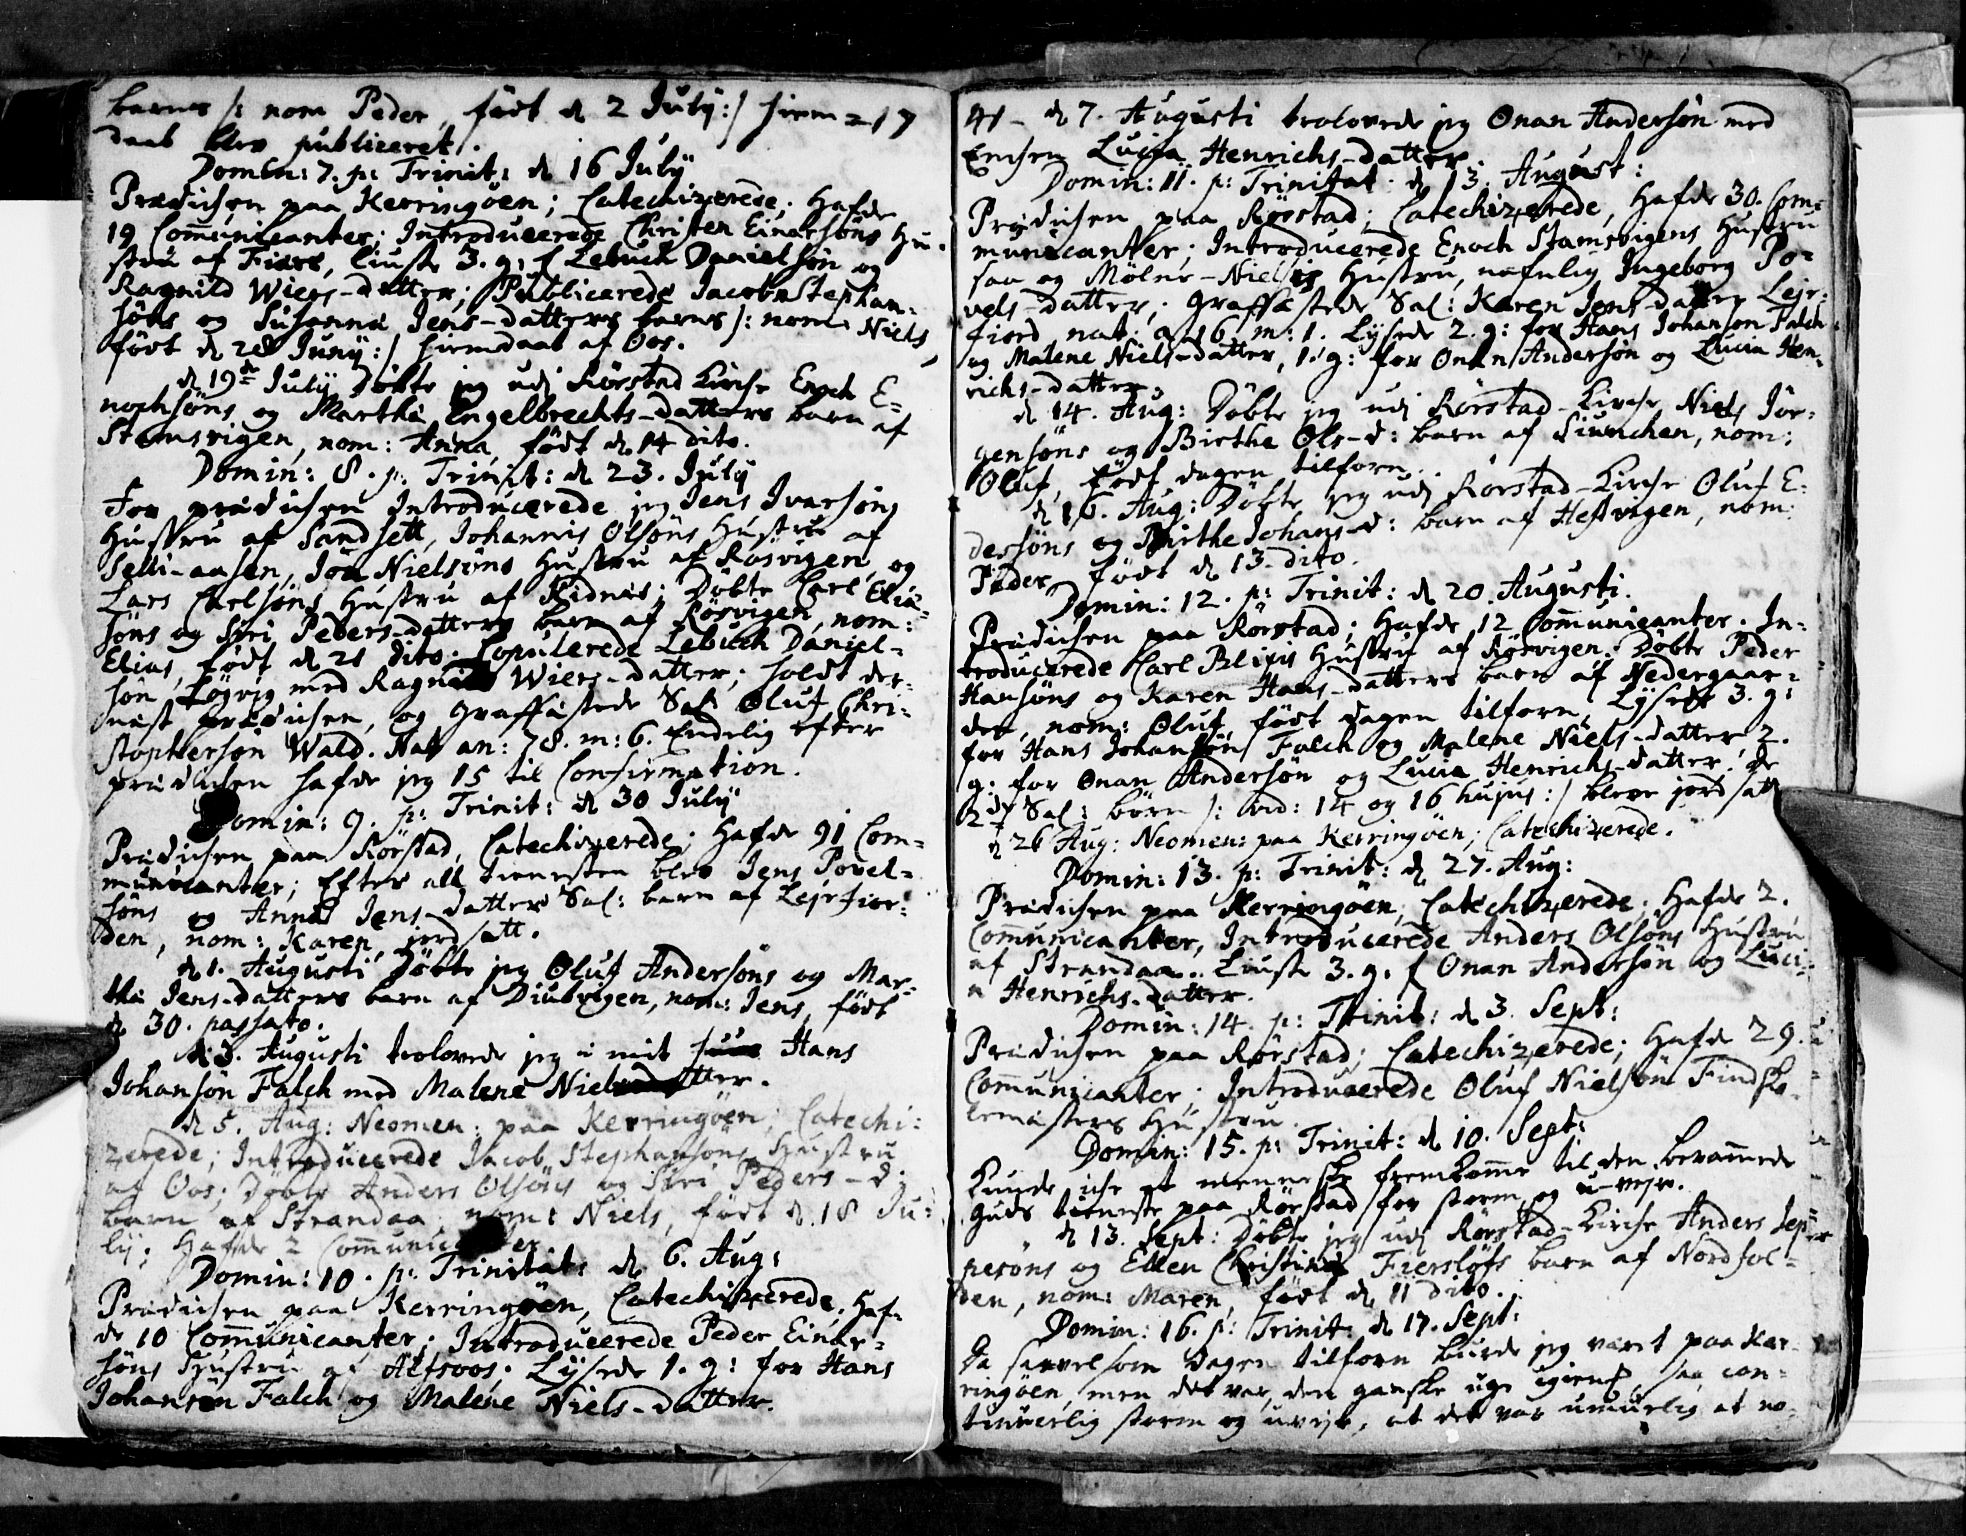 barns /: nom Peder, födt d. 2 July :/ hiem = 17
daab blev publiceret.
Domin: 7. p: Trinit: d. 16 July
Prædichen paa Kerringöen; Catechizerede; Hafde
19 Communicanter; Introducerede Christen Einersöns Hu-
stru af Fiære, liuste 3. g: f Lebuch Danielsön og
Ragnild Wiers-datter; Publicerede Jacob Stephan-
söns og Susanna Jens-datters barns /: nom: Niels,
födt d. 28 Juny :/ hiemdaab af Oos.
d. 19de July Döbte jeg udi Rörstad Kirche Enoch E-
nochsöns og Martha Engelbrechts-datters barn af
Stamsvigen, nom: Anna, födt d. 14 dito.
Domin: 8. p: Trinit: d. 23. July
For prædichen Introducerede jeg Jens Ivarsöns
Hustru af Sandsett, Johannis Olsöns Hustru af
Selli-aasen, Jon Nielsöns Hustru af Rösvigen, og
Lars Carlsöns Hustru af Ridnes; Döbte Carl Elia-
söns og Siri Peders-datters barn af Rösvigen, nom:
Elias, födt d. 21 dito. Copulerede Lebuch Daniel-
sön Lögvig med Ragnild Wiers-datter; holdt der-
næst prædichen, og graffæstede Sal: Oluf Chri-
stophersön Wald. Nat an: 78. m: 6. Endelig efter
prædichen hafde jeg 15 til Confirmation.
Domin: 9. p: Trinit: d. 30 July
Prædichen paa Rörstad, Catechizerede; Hafde 91 Com-
municanter; Efter all tienesten blev Jens Povel-
söns og Anna Jens-datters Sal: barn af Lejrfior-
den, nom: Karen, jordsatt.
d. 1. Augusti Döbte jeg Oluf Andersöns og Mar-
tha Jens-datters barn af Diubvigen, nom: Jens, födt
d. 30. passato.
d. 3. Augusti trolovede jeg i mit huus Hans
Johansön Falch med Malene Nielsdatter.
d. 5. Aug: Neomen: paa Kerringöen; Catechi-
zerede; Introducerede Jacob Stephansöns Hustru
af Oos; Döbte Anders Olsöns og Siri Peders-d:
barn af Strandaa, nom: Niels, födt d. 18 Ju-
ly; Hafde 2 Communicanter
Domin: 10. p: Trinitat: d. 6. Aug:
Prædichen paa Kerringöen, Catechizerede, Haf-
de 10 Communicanter; Introducerede Peder Einer-
söns Hustru af Alfsoos; Lysede 1. g: for Hans
Johansön Falch og Malene Niels-datter.
d. 7. Augusti trolovede jeg Onan Andersön med
Enchen Lucia Henrichs-datter.
Domin: 11. p: Trinitat: d. 13. August:
Prædichen paa Rörstad; Catechizerede, Hafde 30. Com-
municanter; Introducerede Enoch Stamsvigens Hustru
saa og Mölner-Niels Hustru, nafnlig Ingeborg Po-
vels-datter; graffæstede Sal: Karen Jens-datter Lejr-
fiord nat: a. 16. m: 1. Lysede 2. g: for Hans Johansön Falch
og Malene Niels-datter, 1. g: for Onan Andersön og Lucia Hen-
richs-datter.
d. 14. Aug: Döbte jeg udi Rörstad-Kirche Niels Jör-
gensöns og Birthe Ols-d: barn af , nom:
Oluf, födt dagen tilforn.
d. 16. Aug: Döbte jeg udi Rörstad-Kirche Oluf E-
dersöns og Birthe Johans-d: barn af Hestvigen, nom:
Peder, födt d. 13. dito.
Domin: 12. p: Trinit: d. 20. Augusti.
Prædichen paa Rörstad; Hafde 12 Communicanter. In-
troducerede Carl Blixis Hustru af Rörvigen. Döbte Peder
Hansöns og Karen Hans-datters barn af Nedergaar-
den, nom: Oluf, födt dagen tilforn. Lysede 3. g:
for Hans Johansön Falch og Malene Niels-datter, 2.
g: for Onan Andersön og Lucia Henrichs-datter. De
2de Sal: börn /: vid: 14 og 16 hujus :/ bleve jordsatt
d. 26 Aug: Neomen: paa Kerringöen; Catechizerede.
Domin: 13. p: Trinit: d. 27. Aug:
Prædichen paa Kerringöen, Catechizerede. Hafde 2.
Communicanter, Introducerede Anders Olsöns Hustru
af Strandaa. Liuste 3. g. f Onan Andersön og Luci-
a Henrichs-datter.
Domin: 14. p: Trinit: d. 3. Sept:
Prædichen paa Rörstad; Catechizerede; Hafde 29.
Communicanter; Introducerede Oluf Nielsön Findsko-
lemesters Hustru.
Domin: 15. p: Trinit: d. 10. Sept:
Kunde iche et menneske fremkomme til den berammede
Guds tieneste paa Rörstad for storm og u-vejr.
d. 13. Sept: Döbte jeg udi Rörstad-Kirche Anders Jep-
pesöns og Ellen Christina Fierslöfs barn af Nordfol-
den, nom: Maren, födt d. 11 dito.
Domin: 16. p: Trinit: d. 17. Sept:
Da saavelsom dagen tilforn burde jeg været paa Ker-
ringöen, men det var den ganske uge igiennem saa con-
tinuerlig storm og uvejr, at det var umuelig at no-